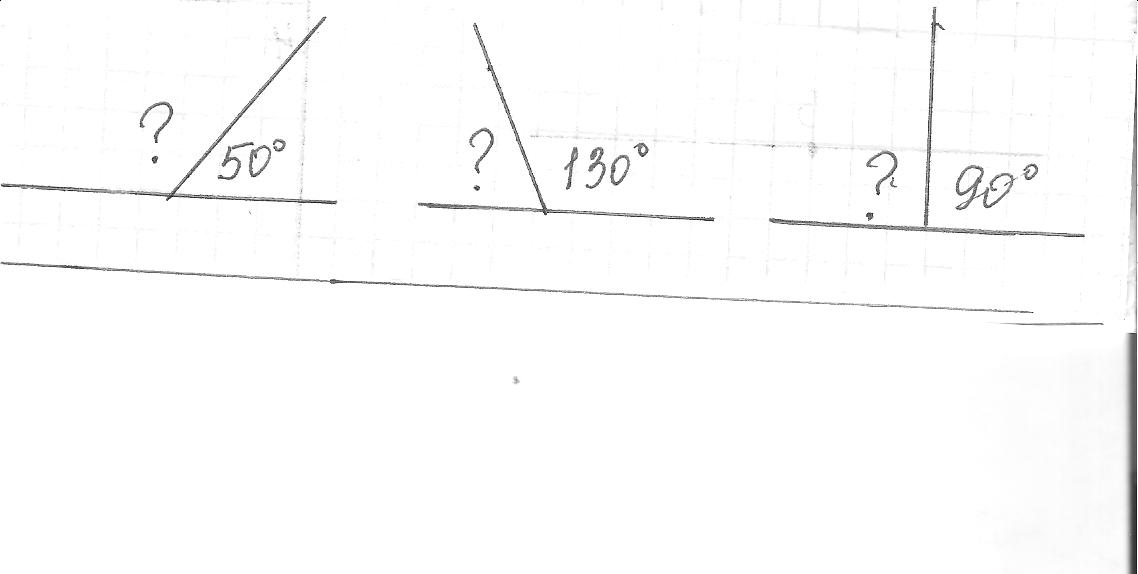 ? 50° ? 130° ? 90°